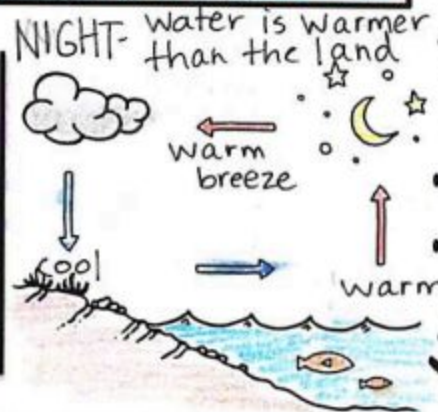 NIGHT- water is warmer
than the land
warm
breeze
cool
warm